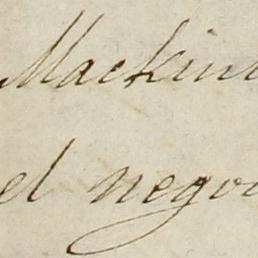 Mackin
el nego